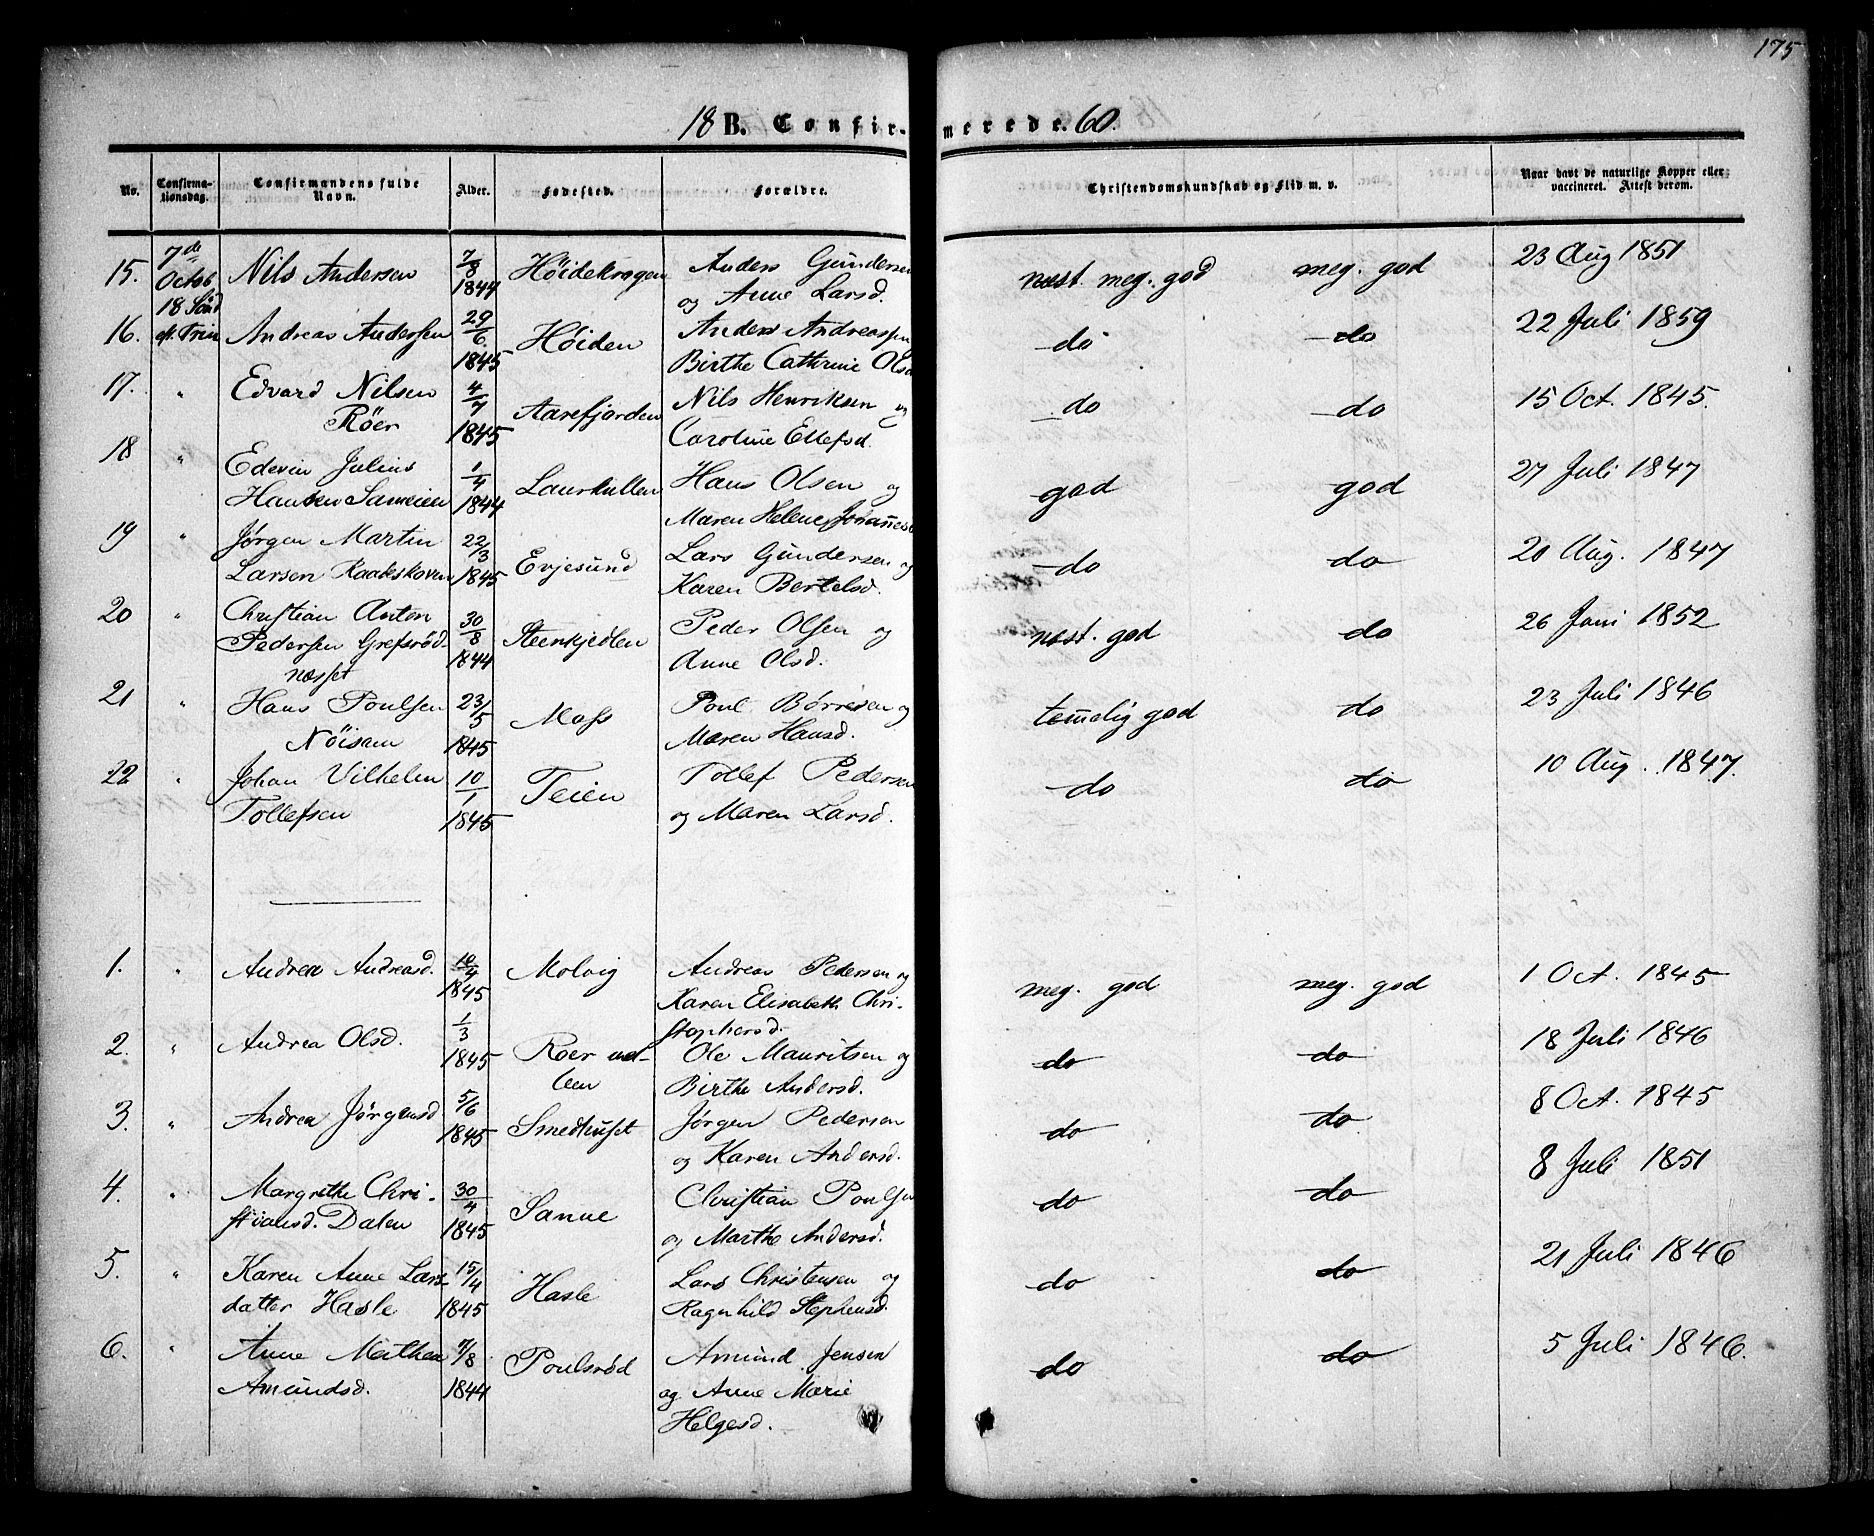 175
18 B. Confir- merede. 60.
No. Confirma- tionsdag. Confirmandens fulde Navn. Alder. Fødested. Forældre. Christendomskundskab og Flid m. v. Naar havt de naturlige Kopper eller vaccineret. Attest derom.
7de
15. Octob. Nils Andersen 7/8 1844 Höidekrogen Anders Gundersen og Anne Larsd. næst. meg. god meg. god 23 Aug 1851
18 Sönd
16. ef. Trin Andreas Andersen 29/6 1845 Höiden Anders Andreassen Birthe Cathrine Olsd do do 22 Juli 1859
17. " Edvard Nilsen Röer 4/7 1845 Aarefjorden Nils Henriksen og Caroline Ellefsd. do do 15 Oct. 1845.
18 " Edevin Julius Hansen Sameien 1/4 1844 Laurkullen Hans Olsen og Maren Helene Johannesd god god 27 Juli 1847
19 " Jørgen Martin Larsen Raakeskoven 22/3 1845 Evjesund Lars Gundersen og Karen Bertelsd. do do 20 Aug. 1847
20 " Christian Anton Pedersen Grefsröd- næsset 30/8 1844 Steenkjedlen Peder Olsen og Anne Olsd. næst. god do 26 Juni 1852
21 " Hans Poulsen Nöisam 23/5 1845 Moss Poul Børresen og Maren Hansd. temelig god do 23 Juli 1846
22 " Johan Vilhelm Tollefsen 10/1 1845 Teien Tollef Pedersen og Maren Larsd. do do 10 Aug. 1847.
1. " Andrea Andreasd. 10/4 1845 Molvig Andreas Pedersen og Karen Elisabeth Chri- stophersd. meg. god meg. god 1 Oct. 1845
2. " Andrea Olsd. 1/3 1845 Roer ud- len Ole Mauritsen og Birthe Andersd. do do 18 Juli 1846
3. " Andrea Jørgensd 5/6 1845 Smedhuset Jørgen Pedersen og Karen Andersd. do do 8 Oct. 1845
4. " Margrethe Chri- stiansd. Dalen 30/4 1845 Sanne Christian Poulsen og Marthe Andersd. do do 8 Juli 1851
5. " Karen Anne Lars- datter Hasle 15/4 1845 Hasle Lars Christensen og Ragnhild Stephensd. do do 21 Juli 1846
6. " Anne Mathea Amundsd. /8 1844 Poulsröd Amund Jensen og Anne Marie Helgesd. do do 5 Juli 1846.